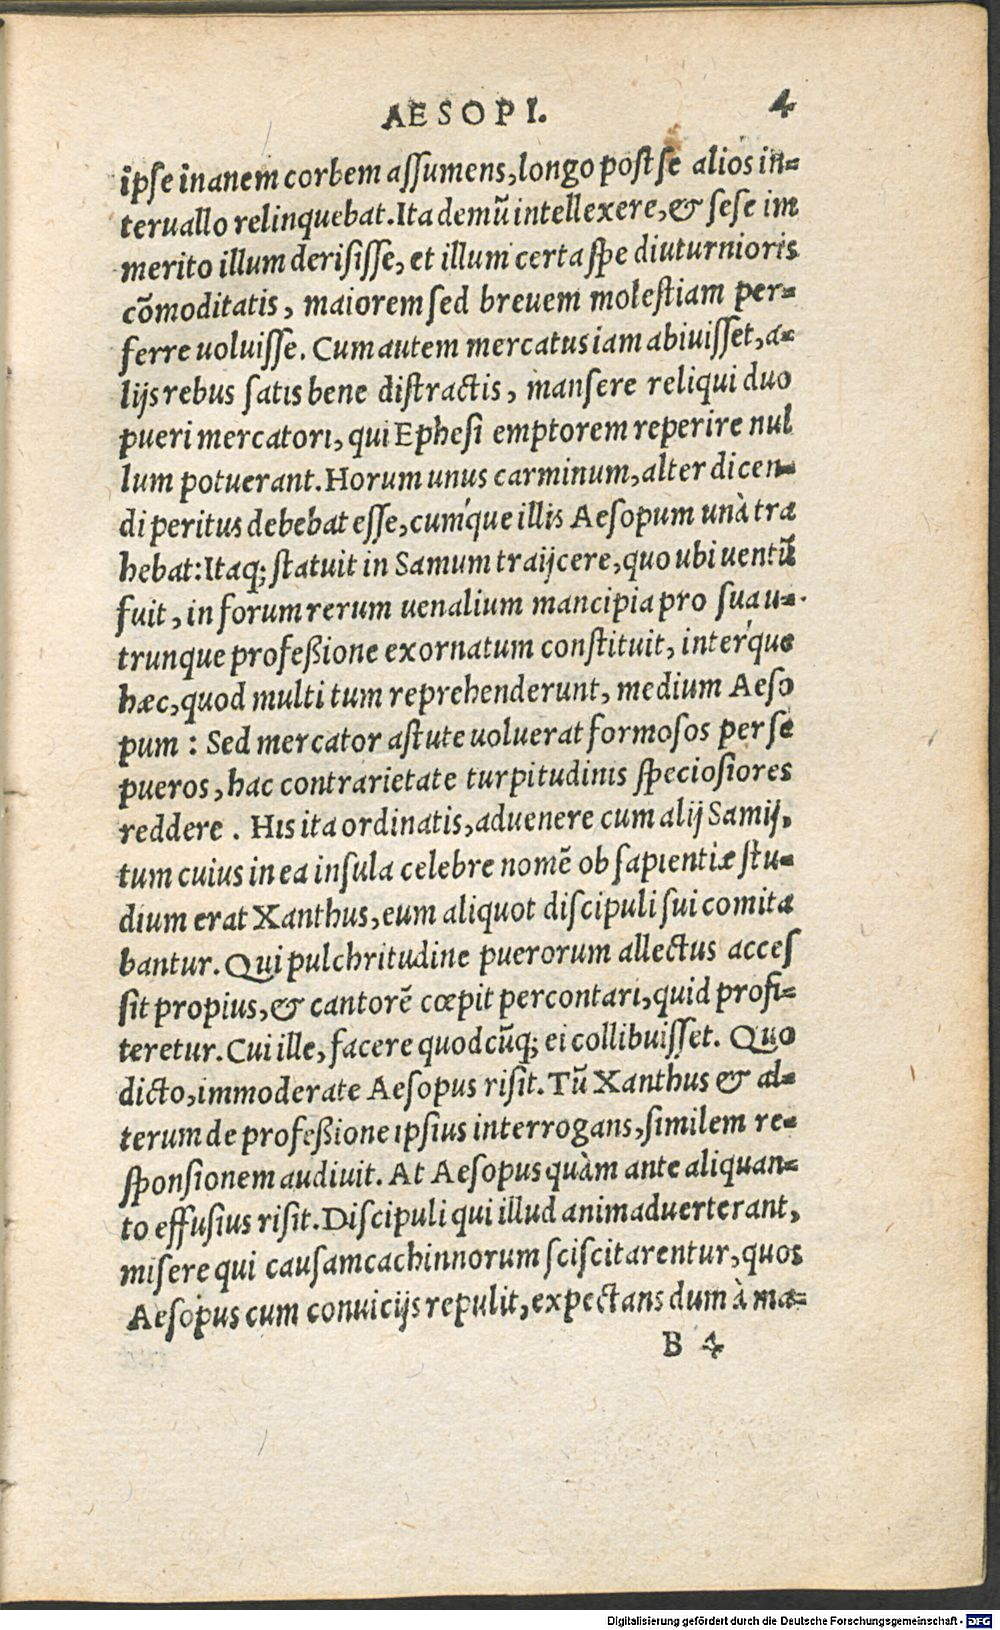 AESOPI. 4
ipse inanem corbem assumens, longo post se alios in-
teruallo relinquebat. Ita demũ intellexere, & sese im
merito illum derisisse, et illum certa spe diuturnioris
cõmoditatis, maiorem sed breuem molestiam per-
ferre uoluisse. Cum autem mercatus iam abiuisset, a-
lijs rebus satis bene distractis, mansere reliqui duo
pueri mercatori, qui Ephesi emptorem reperire nul
lum potuerant. Horum unus carminum, alter dicen-
di peritus debebat esse, cumq́ue illis Aesopum unà tra
hebat: Itaq; statuit in Samum traijcere, quo ubi uentũ
fuit, in forum rerum uenalium mancipia pro sua u-
trunque profeßione exornatum constituit, interq́ue
hæc, quod multi tum reprehenderunt, medium Aeso
pum : Sed mercator astute uoluerat formosos per se
pueros, hac contrarietate turpitudinis speciosiores
reddere . His ita ordinatis, aduenere cum alij Samij,
tum cuius in ea insula celebre nomẽ ob sapientiæ stu-
dium erat Xanthus, eum aliquot discipuli sui comita
bantur. Qui pulchritudine puerorum allectus acces
sit propius, & cantorẽ cœpit percontari, quid profi-
teretur. Cui ille, facere quodcũq; ei collibuisset. Quo
dicto, immoderate Aesopus risit. Tũ Xanthus & al-
terum de profeßione ipsius interrogans, similem re-
sponsionem audiuit. At Aesopus quàm ante aliquan-
to effusius risit. Discipuli qui illud animaduerterant,
misere qui causam cachinnorum sciscitarentur, quos
Aesopus cum conuicijs repulit, expectans dum à ma-
B 4
Digitalisierung gefördert durch die Deutsche Forschungsgemeinschaft - DFG